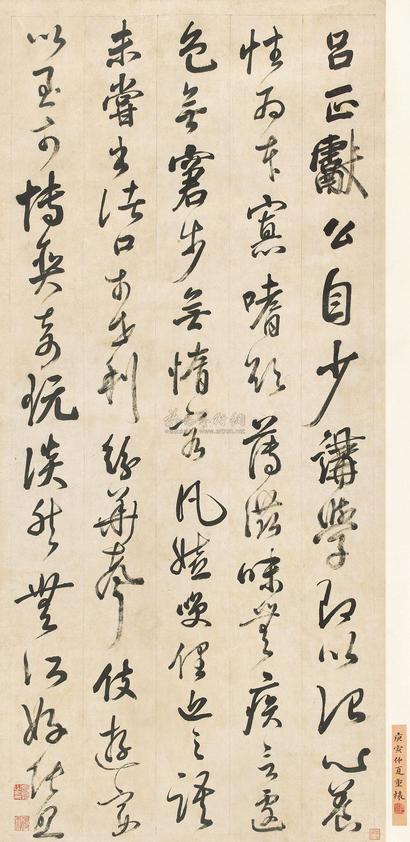 呂正獻公自少講學即以治心養
性為本寡嗜欲薄滋味無疾言遽
色無窘步無惰容凡嬉笑俚近之語
未嘗出諸口於世利紛華聲伎遊宴
以至於博奕奇玩淡然無所好
庚寅仲夏重裱